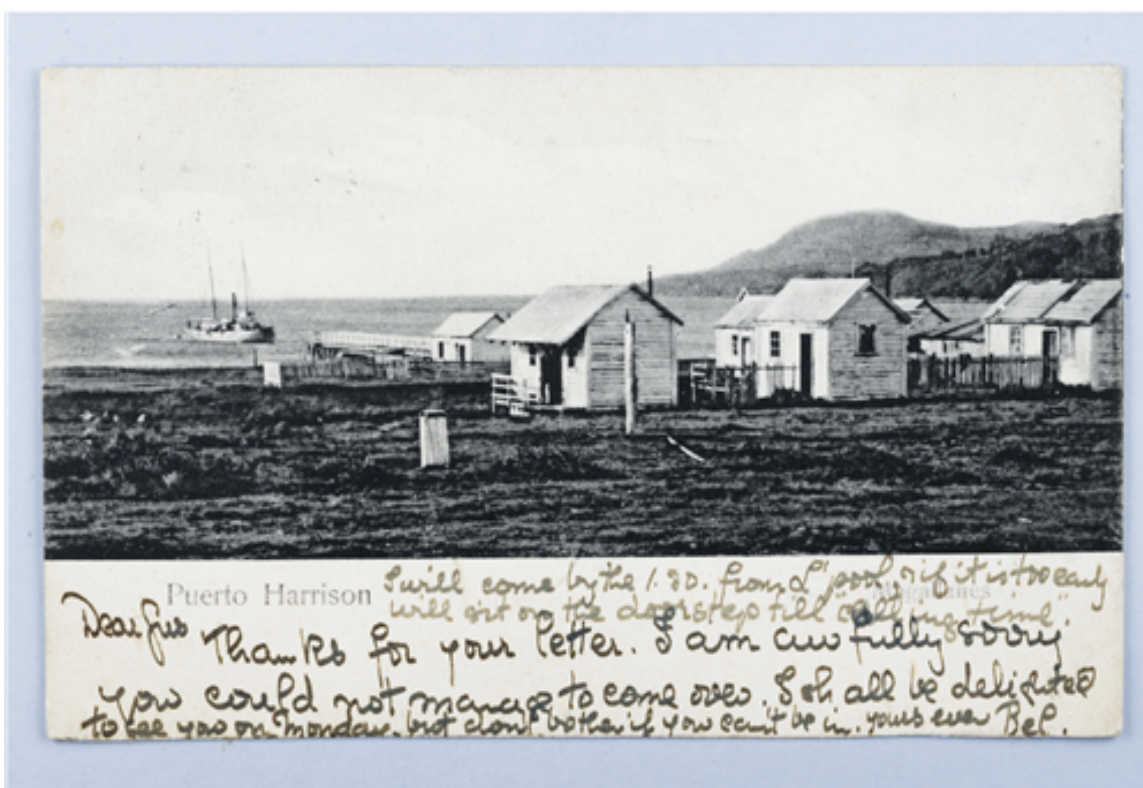 Puerto Harrison
Magallanes
I will come by the 1.20. from L'pool, & if it is too early
will sit on the doorstep till "calling time".
Dear Gus
Thanks for your letter. I am awfully sorry
you could not manage to come over. I shall be delighted
to see you on Monday, but don't bother if you can't be in. yours ever Bel.